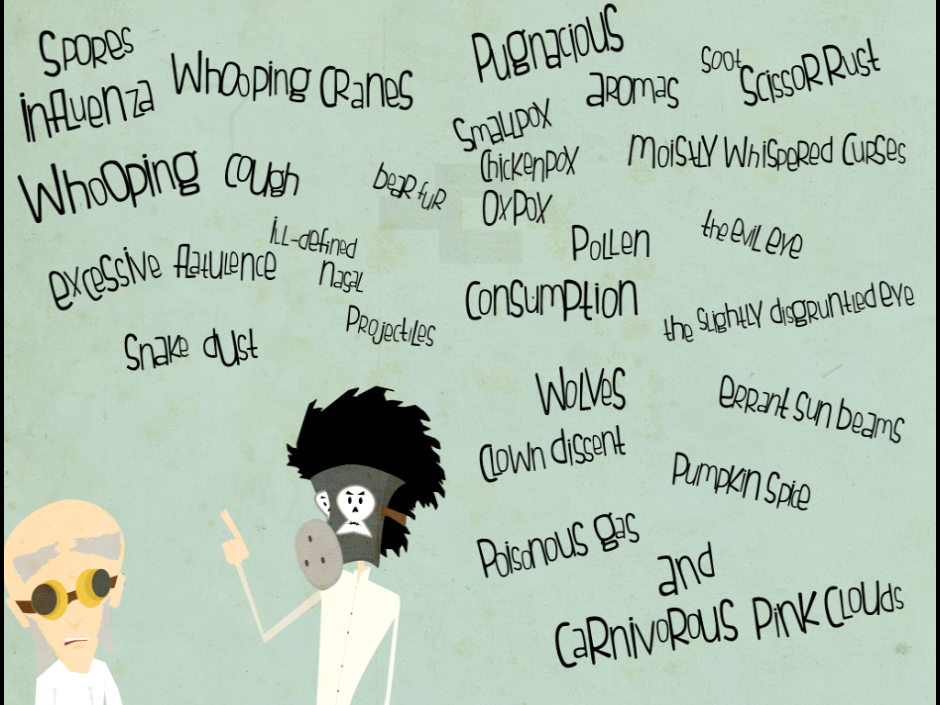 Spores
influenza
Whooping Cranes
Whooping Cough
bear fur
excessive flatulence
ill-defined
nasal
Projectiles
Snake dust
Pugnacious
aromas
Soot
Scissor Rust
Smallpox
Chickenpox
Oxpox
Moistly Whispered Curses
Pollen
the evil eye
Consumption
the slightly disgruntled eye
Wolves
errant sun beams
Clown dissent
Pumpkin Spice
Poisonous gas
and
Carnivorous Pink Clouds